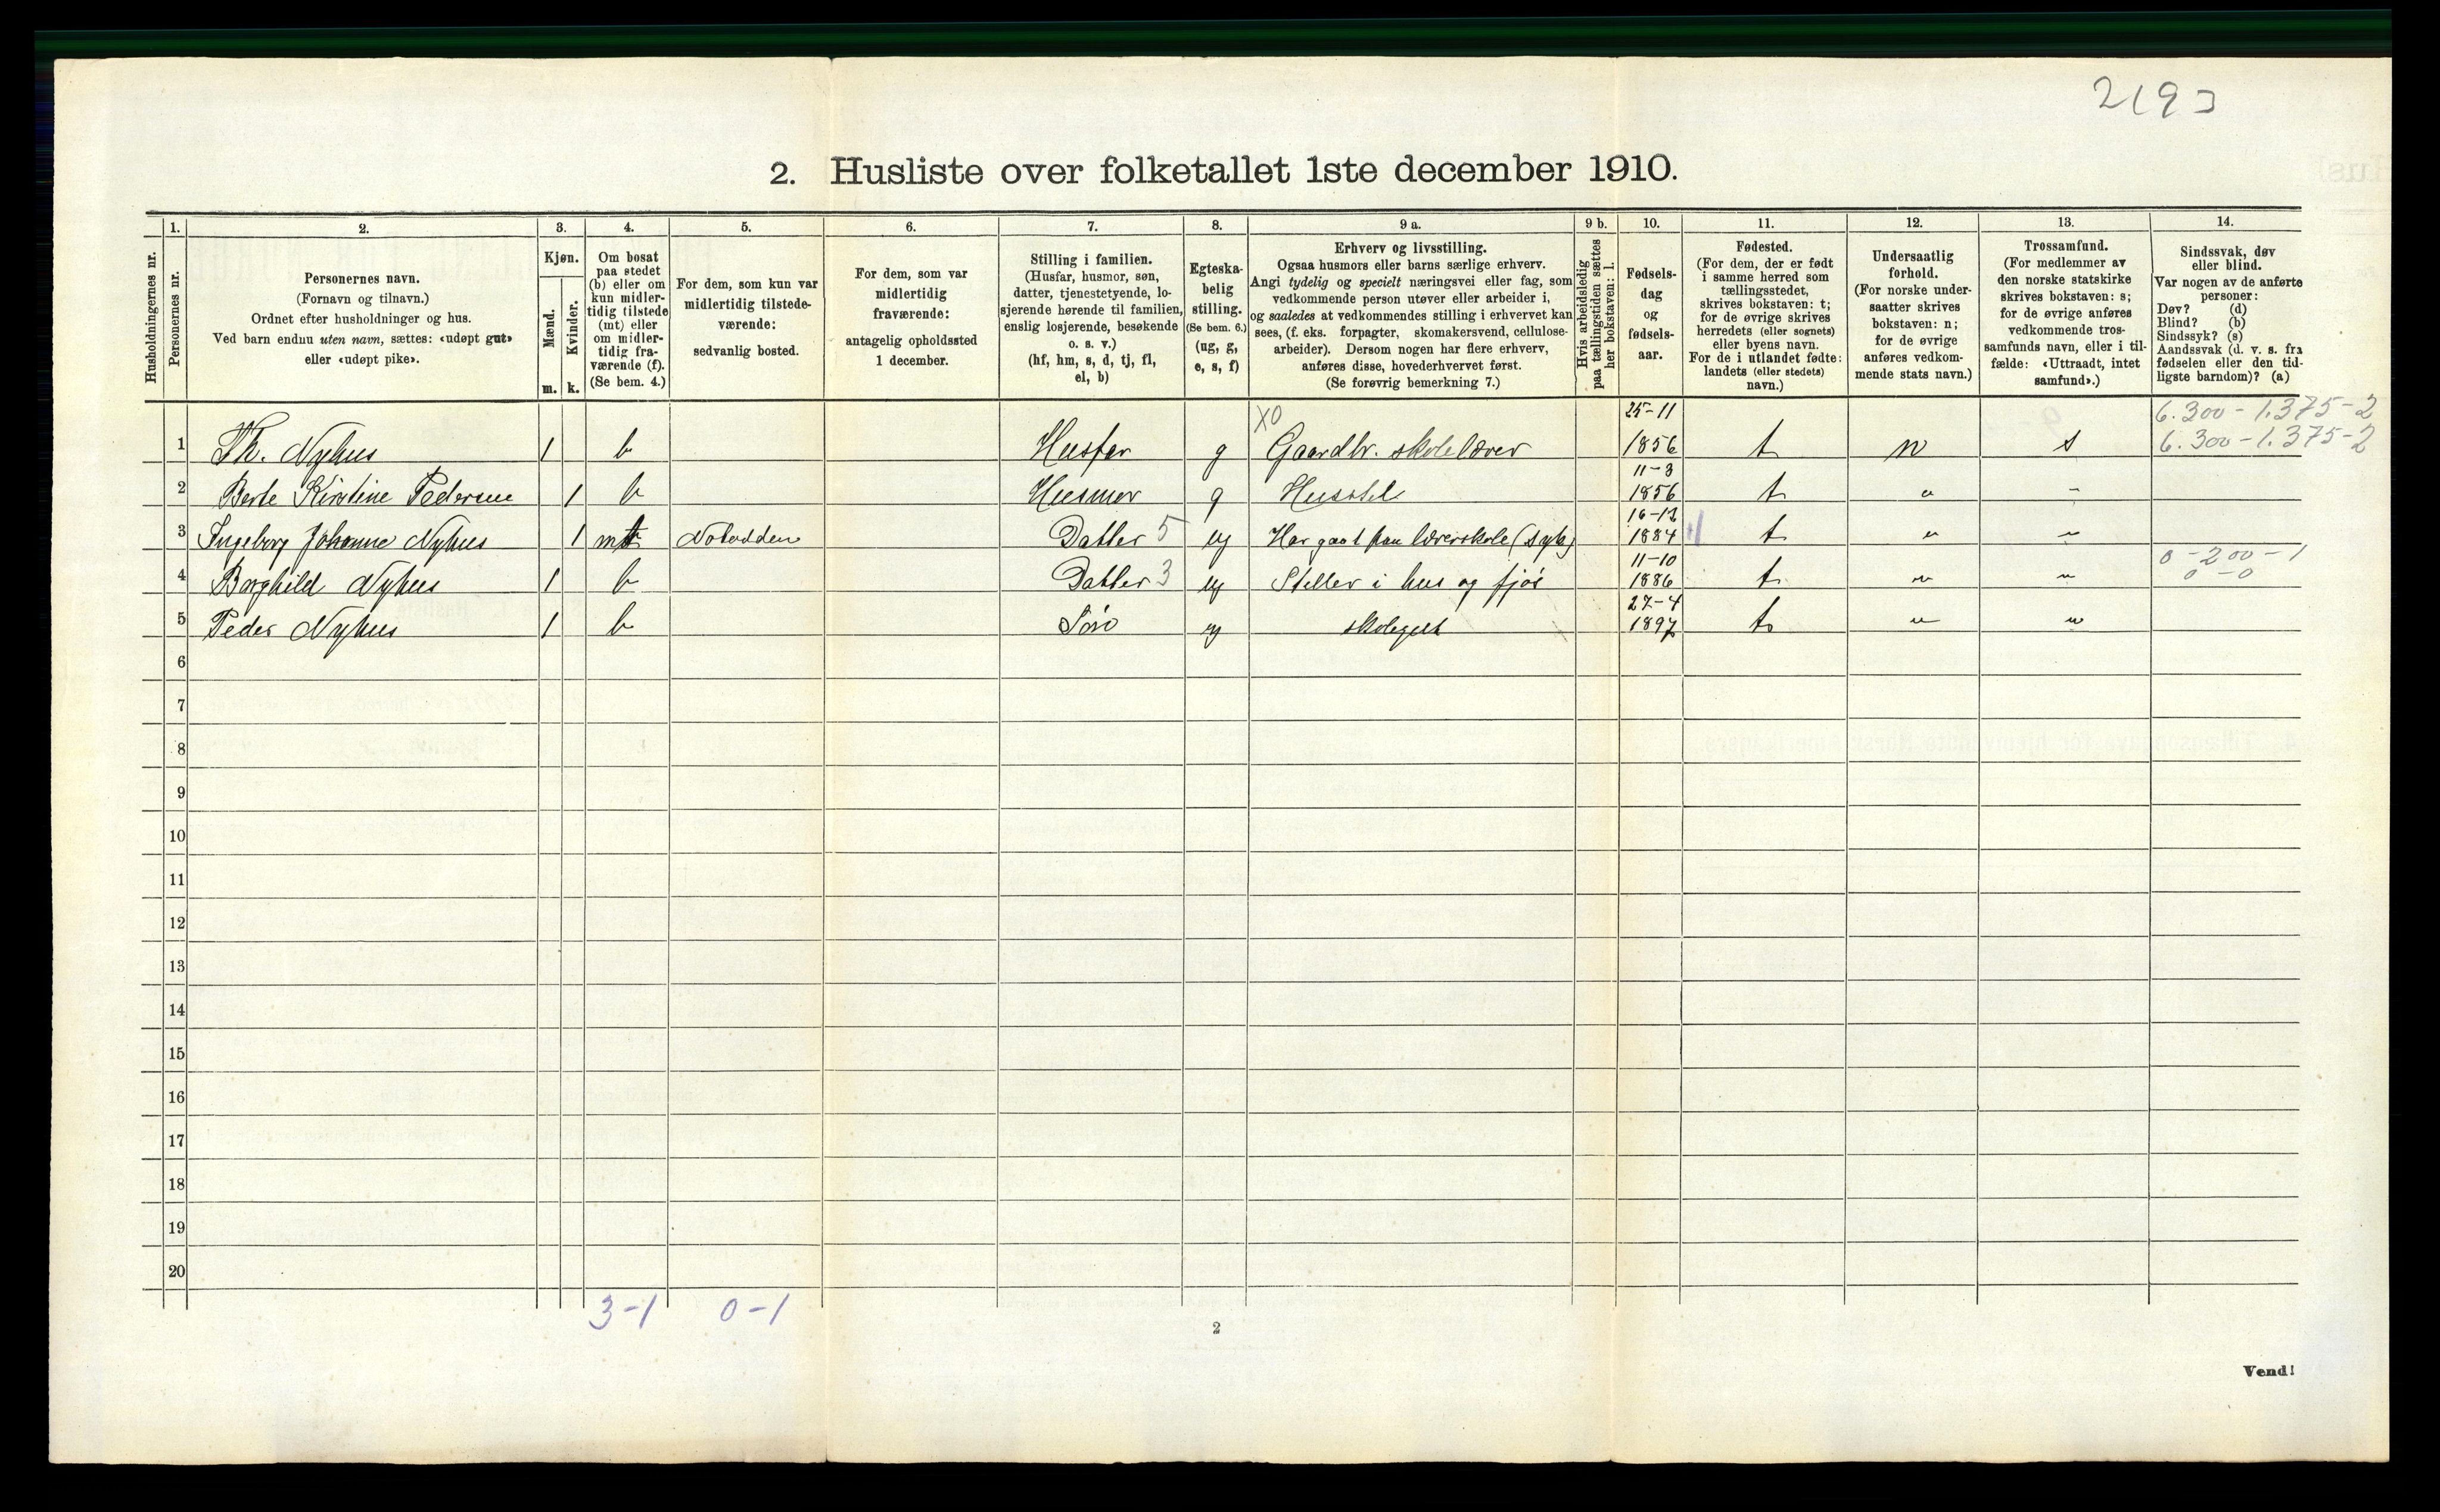 2193
2. Husliste over folketallet 1ste december 1910.
Husholdningernes nr.
1.
Personernes nr.
2.
Personernes navn.
(Fornavn og tilnavn.)
Ordnet efter husholdninger og hus.
Ved barn endnu uten navn, sættes: «udøpt gut»
eller «udøpt pike».
3.
Kjøn.
Mænd.
m.
Kvinder.
k.
4.
Om bosat
paa stedet
(b) eller om
kun midler-
tidig tilstede
(mt) eller
om midler-
tidig fra-
værende (f).
(Se bem. 4.)
5.
For dem, som kun var
midlertidig tilstede-
værende:
sedvanlig bosted.
6.
For dem, som var
midlertidig
fraværende:
antagelig opholdssted
1 december.
7.
Stilling i familien.
(Husfar, husmor, søn,
datter, tjenestetyende, lo-
sjerende hørende til familien,
enslig losjerende, besøkende
o. s. v.)
(hf, hm, s, d, tj, fl,
el, b)
8.
Egteska-
belig
stilling.
(Se bem. 6.)
(ug, g,
e, s, f)
9 a.
Erhverv og livsstilling.
Ogsaa husmors eller barns særlige erhverv.
Angi tydelig og specielt næringsvei eller fag, som
vedkommende person utøver eller arbeider i,
og saaledes at vedkommendes stilling i erhvervet kan
sees, (f. eks. forpagter, skomakersvend, cellulose-
arbeider). Dersom nogen har flere erhverv,
anføres disse, hovederhvervet først.
(Se forøvrig bemerkning 7.)
9 b.
Hvis arbeidsledig
paa tællingstiden sættes
her bokstaven: l.
10.
Fødsels-
dag
og
fødsels-
aar.
11.
Fødested.
(For dem, der er født
i samme herred som
tællingsstedet,
skrives bokstaven: t;
for de øvrige skrives
herredets (eller sognets)
eller byens navn.
For de i utlandet fødte:
landets (eller stedets)
navn.)
12.
Undersaatlig
forhold.
(For norske under-
saatter skrives
bokstaven: n;
for de øvrige
anføres vedkom-
mende stats navn.)
13.
Trossamfund.
(For medlemmer av
den norske statskirke
skrives bokstaven: s;
for de øvrige anføres
vedkommende tros-
samfunds navn, eller i til-
fælde: «Uttraadt, intet
samfund».)
14.
Sindssvak, døv
eller blind.
Var nogen av de anførte
personer:
Døv? (d)
Blind? (b)
Sindssyk? (s)
Aandssvak (d. v. s. fra
fødselen eller den tid-
ligste barndom)? (a)
X0 25-11 6.300-1.375-2
1 Th. Nyhus 1 b Husfar g Gaardbr. skolelærer 1856 t n s 6.300-1.375-2
11-3
2 Berte Kirstine Pedersen 1 b Husmor g Husstel 1856 t " "
16-12
3 Ingeborg Johanne Nyhus 1 mt Notodden Datter 5 ug Har gaat paa lærerskole (syk) 1884 t " "
11-10 0-200-1
4 Borghild Nyhus 1 b Datter 3 ug Steller i hus og fjøs 1886 t " " 0-0
27-4
5 Peder Nyhus 1 b Søn ug skolegut 1897 t " "
6
7
8
9
10
11
12
13
14
15
16
17
18
19
20
3-1 0-1
2
Vend!